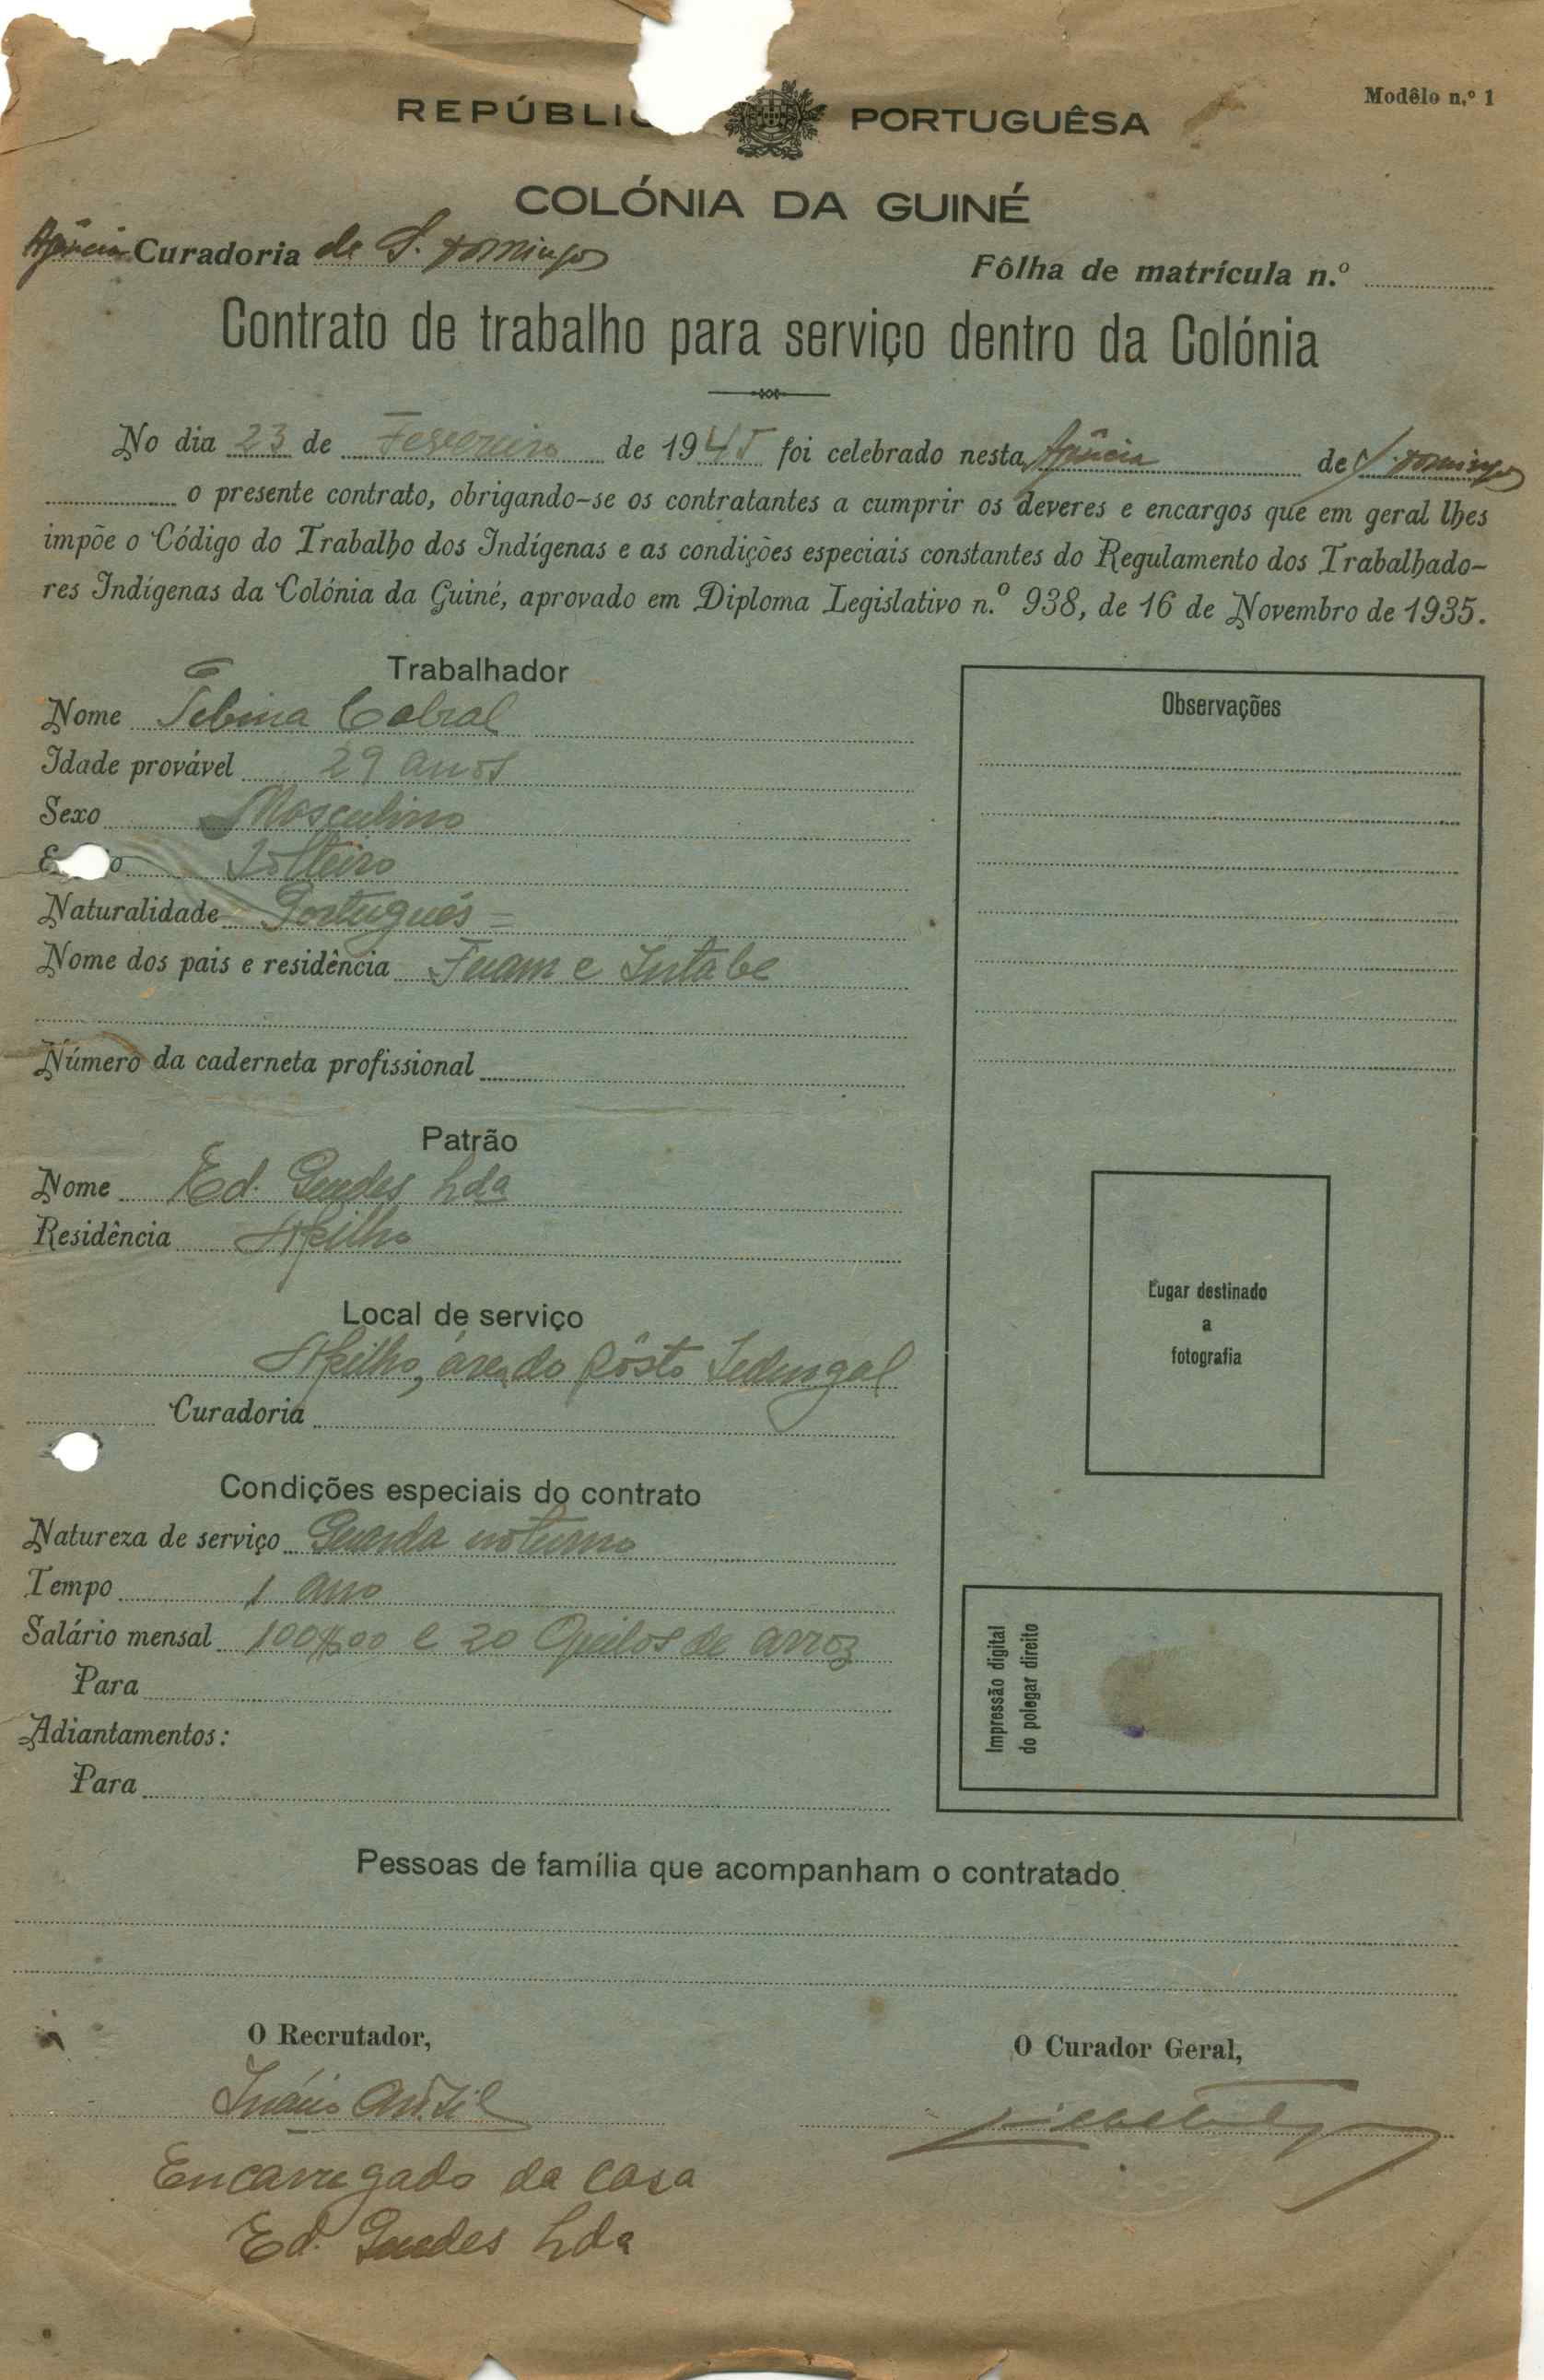 Modêlo n.º 1
REPÚBLIC PORTUGUÊSA
COLÓNIA DA GUINÉ
Agência Curadoria de S. Domingos
Fôlha de matrícula n.º
Contrato de trabalho para serviço dentro da Colónia
No dia 23 de Fevereiro de 1945 foi celebrado nesta Agência de S. Domingos
o presente contrato, obrigando-se os contratantes a cumprir os deveres e encargos que em geral lhes
impõe o Código do Trabalho dos Indígenas e as condições especiais constantes do Regulamento dos Trabalhado-
res Indígenas da Colónia da Guiné, aprovado em Diploma Legislativo n.º 938, de 16 de Novembro de 1935.
Trabalhador
Nome Cabral
Idade provável 29 anos
Sexo Masculino
E o Solteiro
Naturalidade Português
Nome dos pais e residência e
Número da caderneta profissional
Patrão
Nome Ed. Guedes Lda
Residência
Local de serviço
área do Pôsto Sedengal
Curadoria
Condições especiais do contrato
Natureza de serviço Guarda noturno
Tempo 1 ano
Salário mensal 100$00 e 20 Quilos de arroz
Para
Adiantamentos:
Para
Observações
Lugar destinado
a
fotografia
Impressão digital
do polegar direito
Pessoas de família que acompanham o contratado
O Recrutador,
O Curador Geral,
Encarregado da Casa
Ed. Guedes Lda